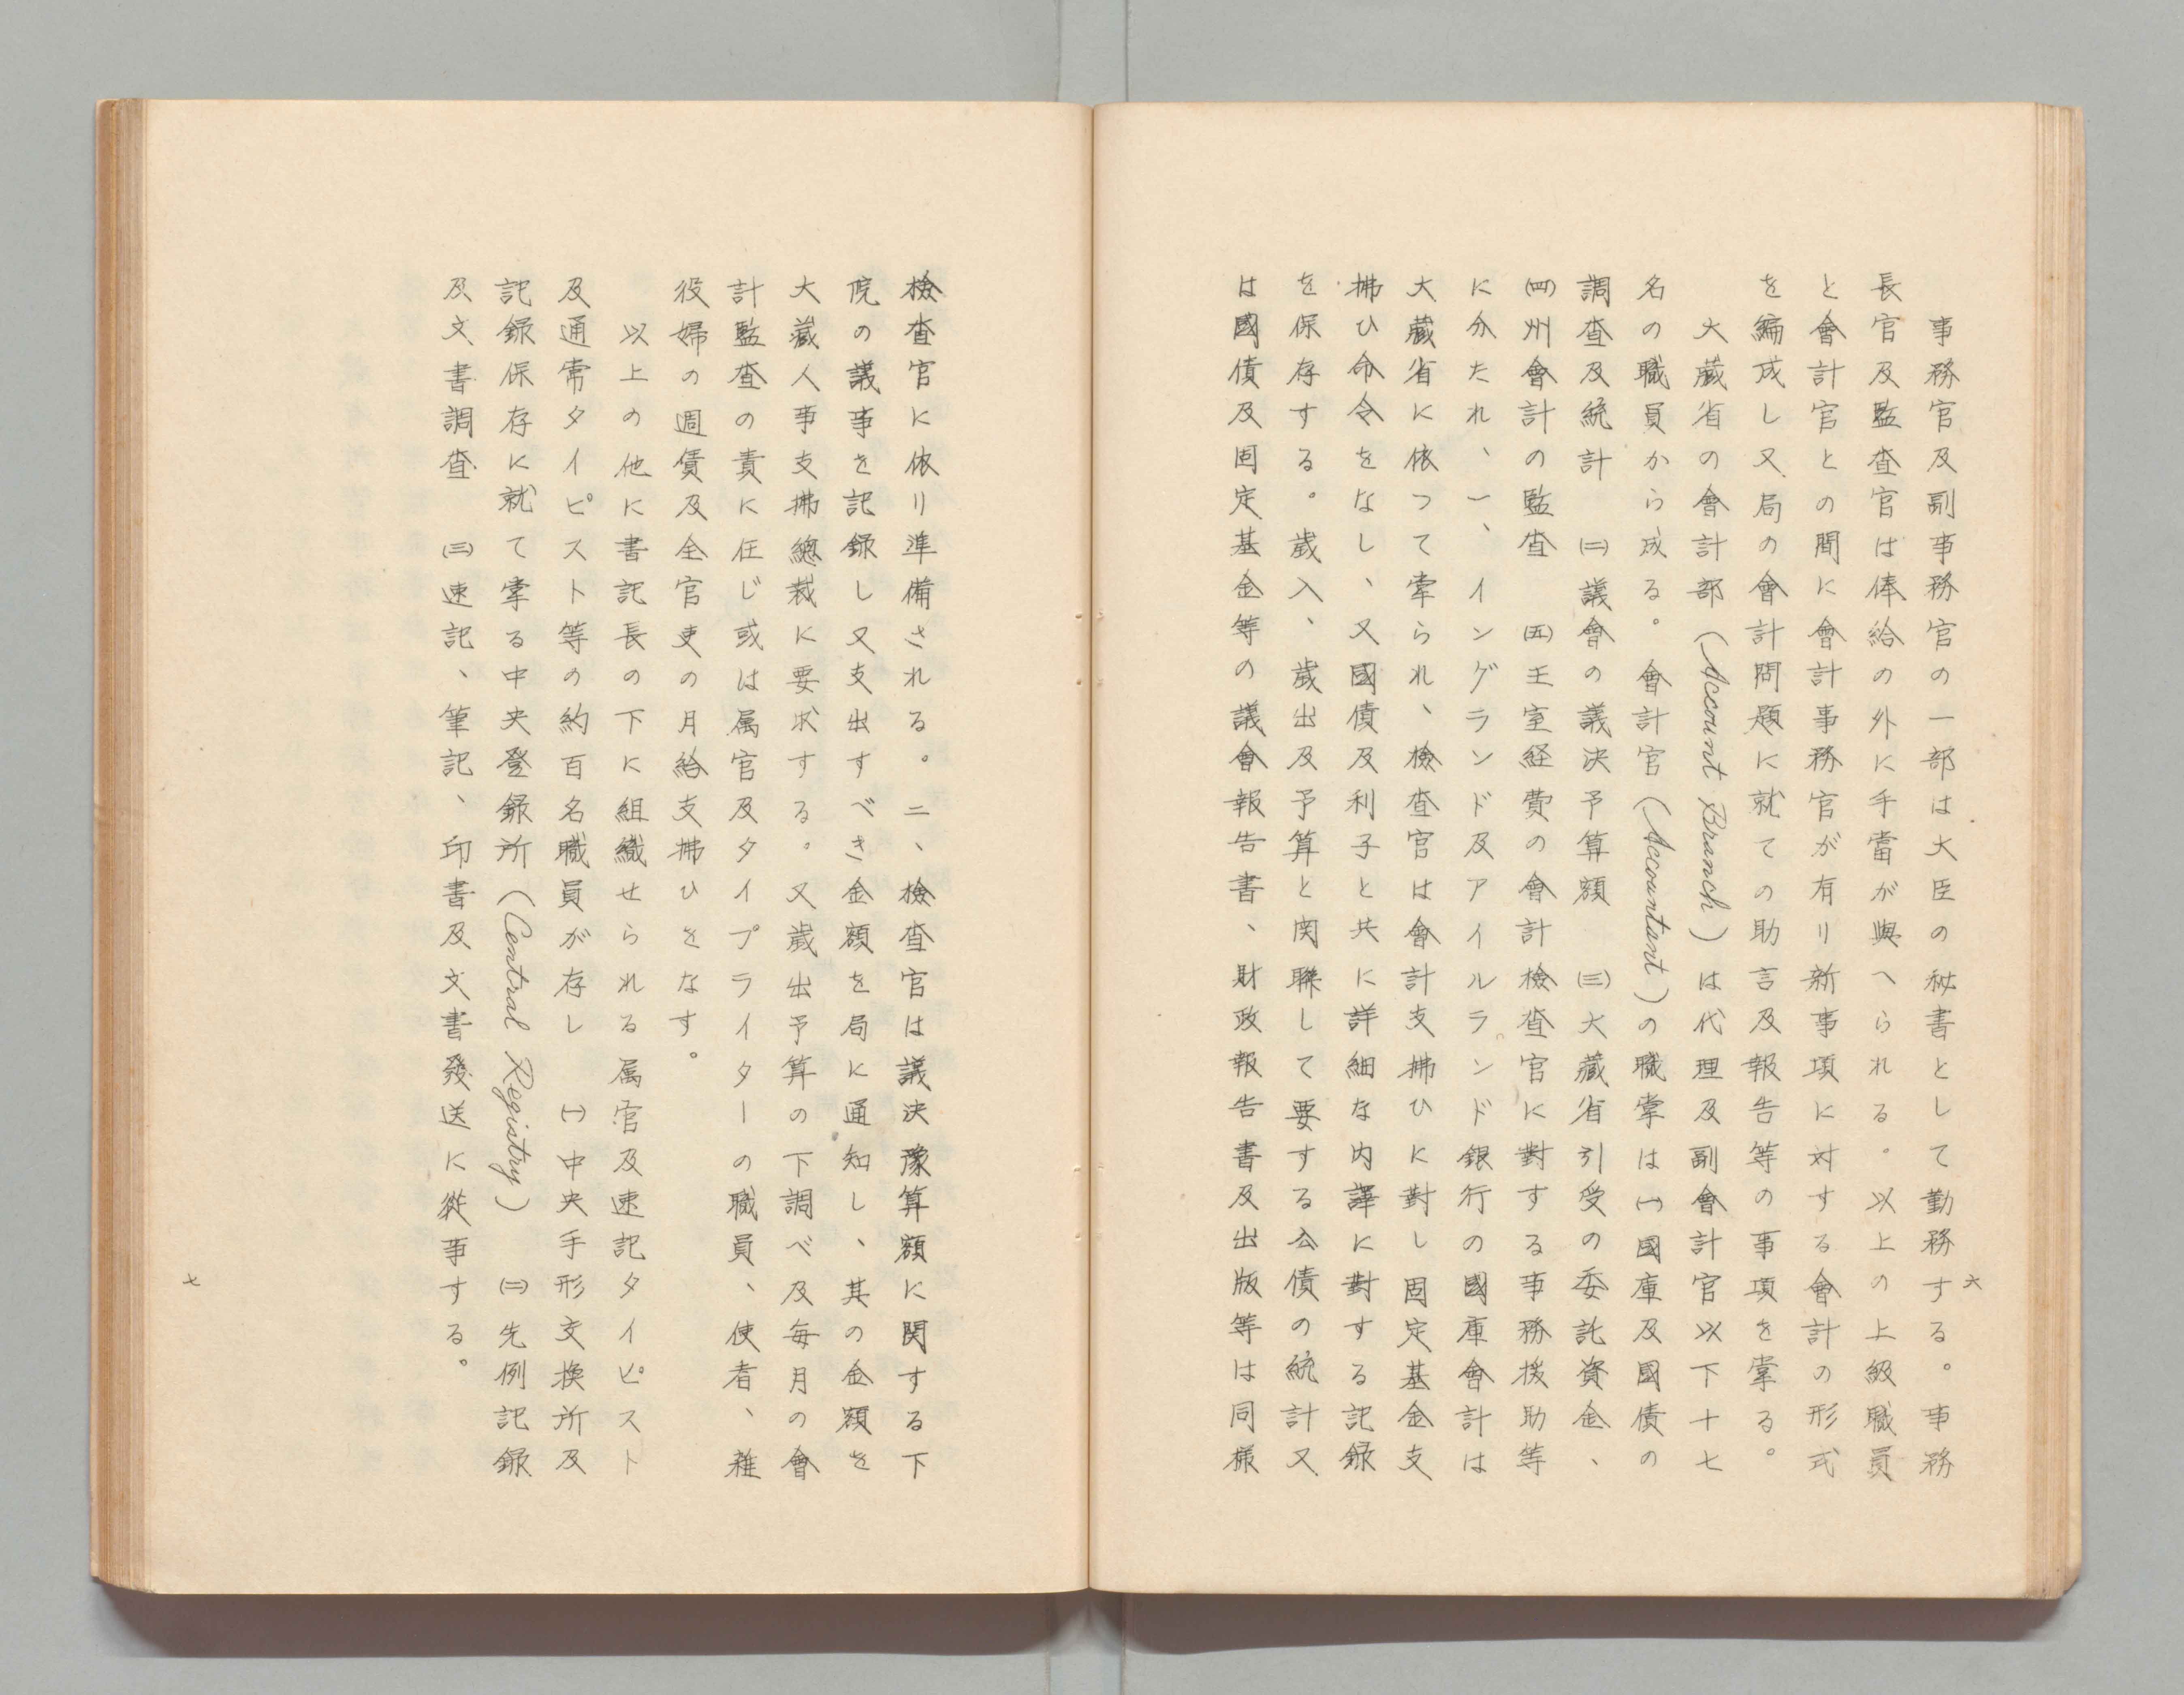 事務官及副事務官の一部は大臣の秘書として勤務する。事務
長官及監査官は俸給の外に手當が與へられる。以上の上級職員
と會計官との間に會計事務官が有り新事項に対する會計の形式
を編成し又局の會計問題に就ての助言及報告等の事項を掌る。
大蔵省の會計部(Account Branch)は代理及副會計官以下十七
名の職員から成る。會計官(Accountant)の職掌は㈠國庫及國債の
調査及統計 ㈡議會の議決予算額 ㈢大藏省引受の委託資金、
㈣州會計の監査 ㈤王室経費の會計檢査官に對する事務援助等
に分たれ、一、イングランド及アイルランド銀行の國庫會計は
大藏省に依つて掌られ、檢査官は會計支拂ひに對し固定基金支
拂ひ命令をなし、又國債及利子と共に詳細な内譯に對する記録
を保存する。歳入、歳出及予算と関聯して要する公債の統計又
は國債及固定基金等の議會報告書、財政報告書及出版等は同様
六
檢査官に依り準備される。二、檢査官は議決豫算額に関する下
院の議事を記録し又支出すべき金額を局に通知し、其の金額を
大蔵人事支拂總裁に要求する。又歳出予算の下調べ及毎月の會
計監査の責に任じ或は属官及タイプライターの職員、使者、雑
役婦の週賃及全官吏の月給支拂ひをなす。
以上の他に書記長の下に組織せられる属官及速記タイピスト
及通常タイピスト等の約百名職員が存し ㈠中央手形交換所及
記録保存に就て掌る中央登録所(Central Registry) ㈡先例記録
及文書調査 ㈢速記、筆記、印書及文書發送に從事する。
七